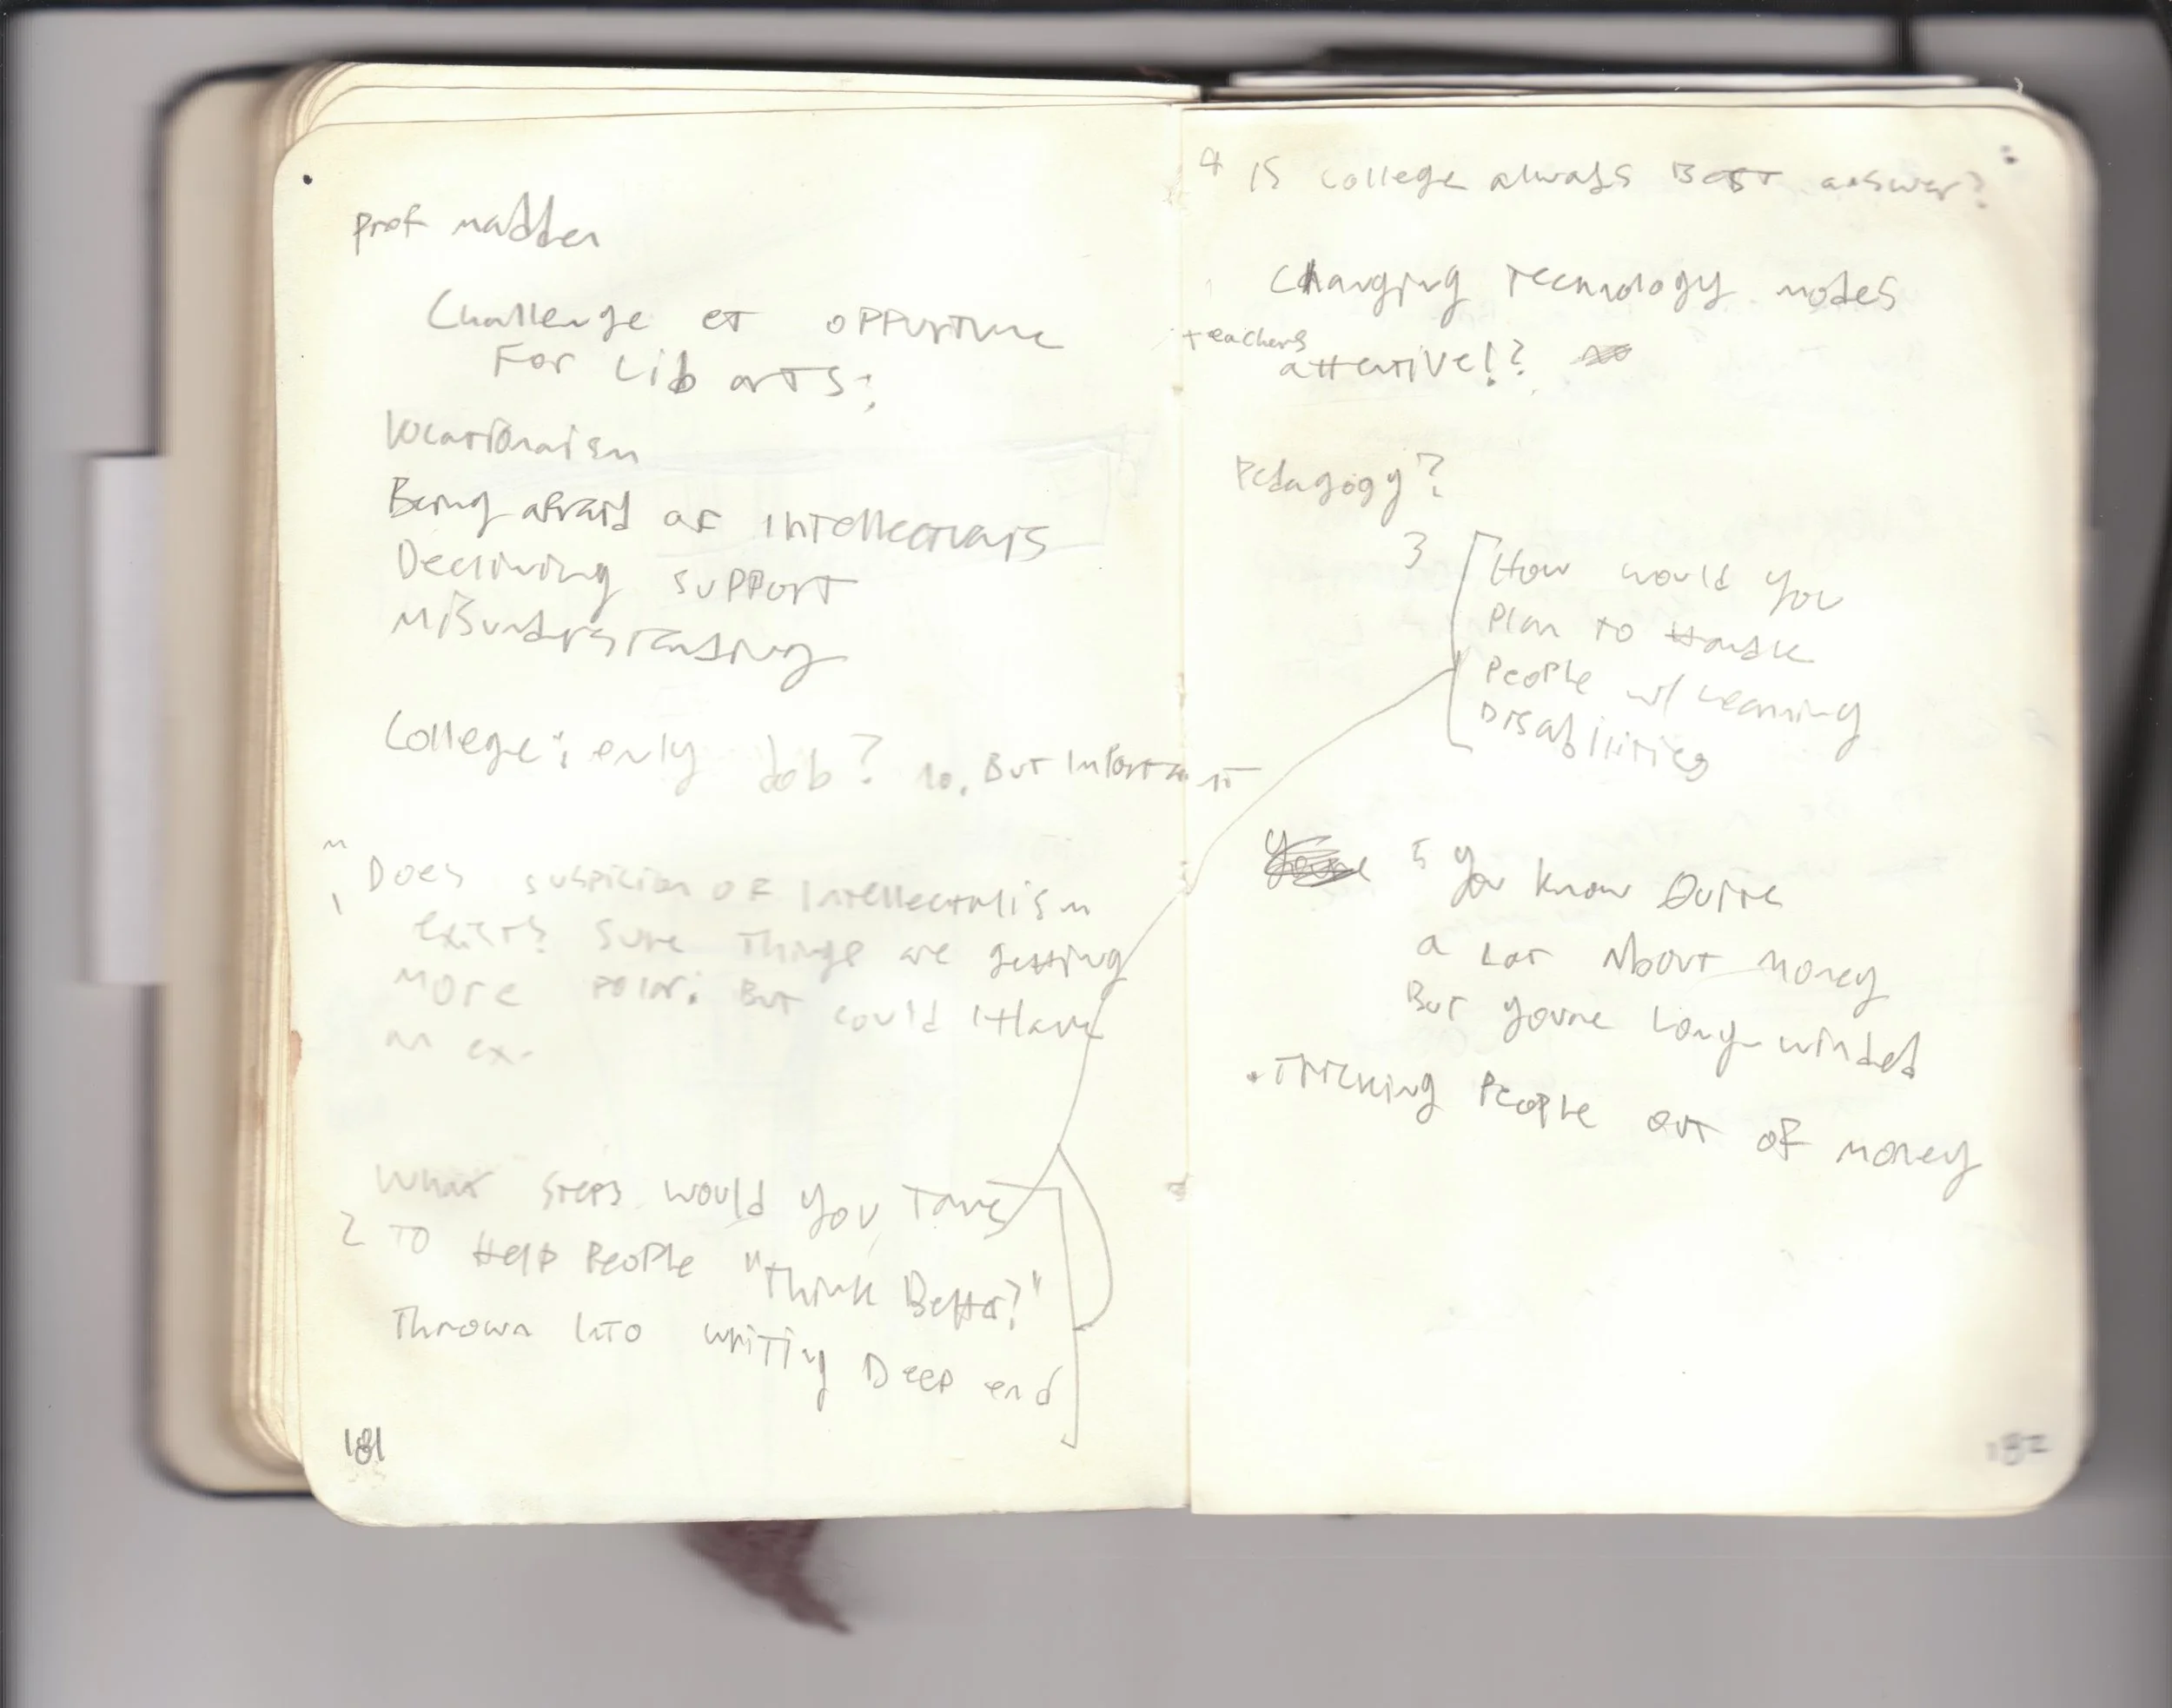 Prof Madden
Challenge et oppurtune
For Lib arts:
Vocationaism
Being afraid of intellectuals
Declining support
Misunderstanding
College: only job? no, But important
1 Does suspicion of intellectualism
exist? Sure things are getting
more polar: But could I Have
an ex.
What steps would you Take
2 To Help People "Think Better?"
Thrown into writing Deep end
181
4 Is college always Best answer?
Changing technology modes
+teachers
attentive!?
Pedagogy?
3 How would you
Plan to Handle
People w/ Learning
Disabilities
5 You know Quite
a Lot About Money
But youre Long-winded
. Tricking People out of money
182